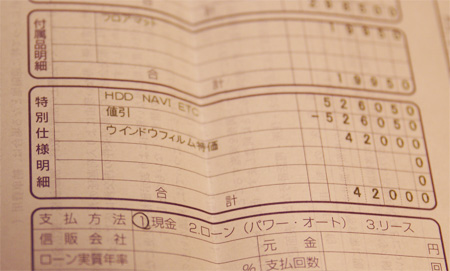 付属品明細
フロアマット 19950
合計 19950
特別仕様明細
HDD NAVI ETC 526050
値引 -526050
ウインドウフィルム特価 42000
0
0
合計 42000
支払方法 1.現金 2.ローン(パワー・オート) 3.リース
信販会社 元金 円
ローン実質年率 % 支払回数 回